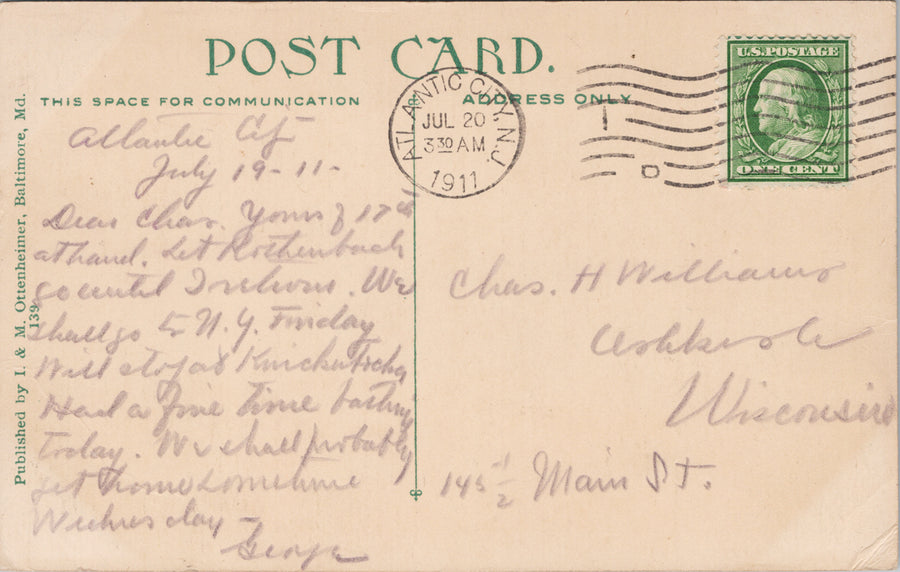 POST CARD.
THIS SPACE FOR COMMUNICATION
ADDRESS ONLY
Published by I. & M. Ottenheimer, Baltimore, Md.
139
ATLANTIC CITY, N.J.
JUL 20
3 30 AM
1911
U.S. POSTAGE
ONE CENT
Atlantic City
July 19-11-
Dear Chas. Yours of 17th
at hand. Let Rothenbach
go until I return. We
shall go to N.Y. Friday
Will stop at Knickerbocker
Had a fine time bathing
today. We shall probably
get home sometime
Wednesday
George
Chas. H Williams
Oshkosh
Wisconsin
145 1/2 Main St.